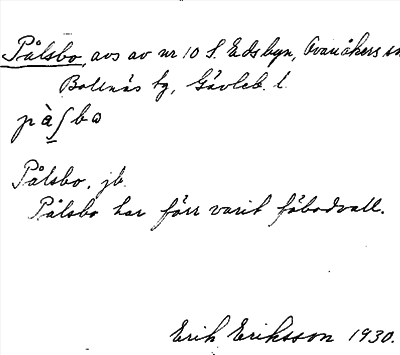 Pålsbo, avs av nr 10 S. Edsbyn, Ovanåkers sn
Bollnäs tg, Gävleb. l.
pàʃbo
Pålsbo, jb.
Pålsbo har förr varit fäbodvall.
Erik Eriksson 1930.